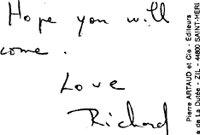 Hope you will
come.
Love
Richard
Pierre ARTAUD et Cie - Editeurs
de La Dutée - ZIL - 44800 SAINT-HERB